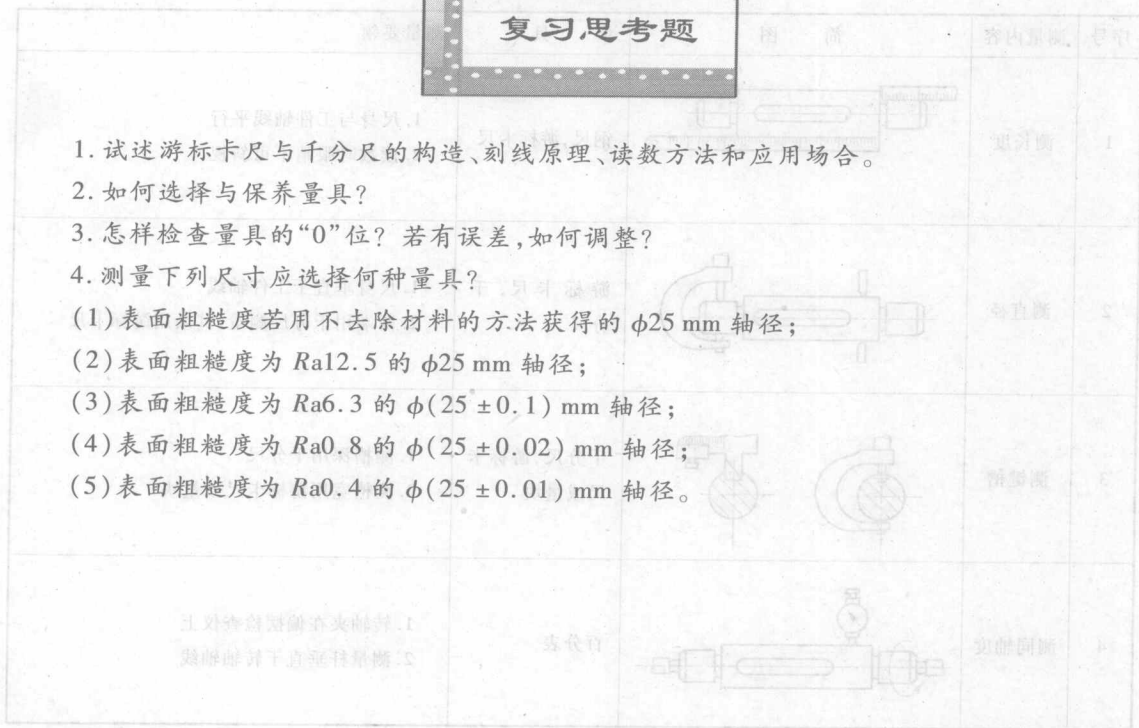 复习思考题
1.试述游标卡尺与千分尺的构造、刻线原理、读数方法和应用场合。
2.如何选择与保养量具?
3.怎样检查量具的“0”位? 若有误差,如何调整?
4.测量下列尺寸应选择何种量具?
(1)表面粗糙度若用不去除材料的方法获得的 φ25 mm 轴径;
(2)表面粗糙度为 Ra12.5 的 φ25 mm 轴径;
(3)表面粗糙度为 Ra6.3 的 φ(25 ±0.1) mm 轴径;
(4)表面粗糙度为 Ra0.8 的 φ(25 ±0.02) mm 轴径;
(5)表面粗糙度为 Ra0.4 的 φ(25 ±0.01) mm 轴径。